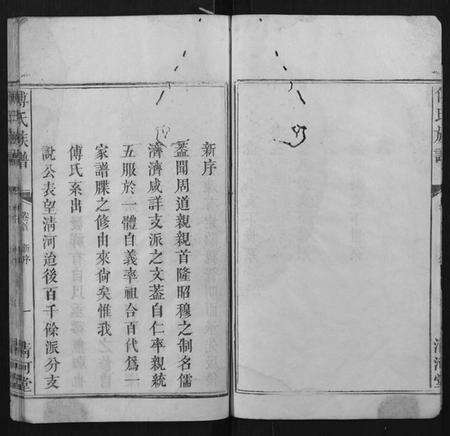 新序
蓋聞周道親親首隆昭穆之制名儒
濟濟咸詳支派之文蓋自仁率親統
五服於一體自義率祖合百代爲一
家譜牒之修由來尚矣惟我
傅氏系出
說公表望清河迨後百千條派分支
傅氏族譜
卷首 新序
一
清河堂
傅氏族譜
清河堂